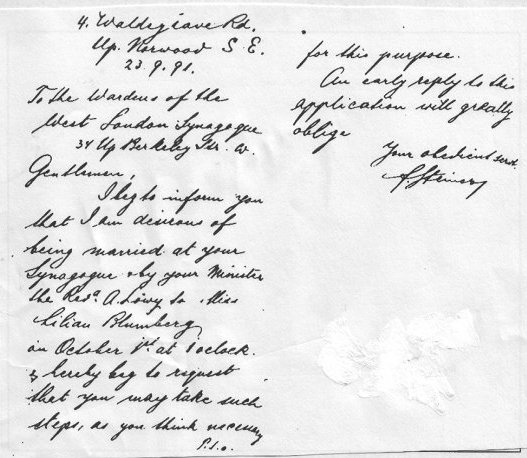 4. Waldegrave Rd.
Up. Norwood S. E.
23.9.91.
To the Wardens of the
West London Synagogue
34 Up Berkeley Str. W.
Gentlemen,
I beg to inform you
that I am desirous of
being married at your
Synagogue & by your Minister
the Revd. A. Löwy to Miss
Lilian Blumberg
on October 1st at 1 oclock.
& hereby beg to request
that you may take such
steps, as you think necessary
P.t.o.
for this purpose.
An early reply to this
application will greatly
oblige
Your obedient servt.
Steiner